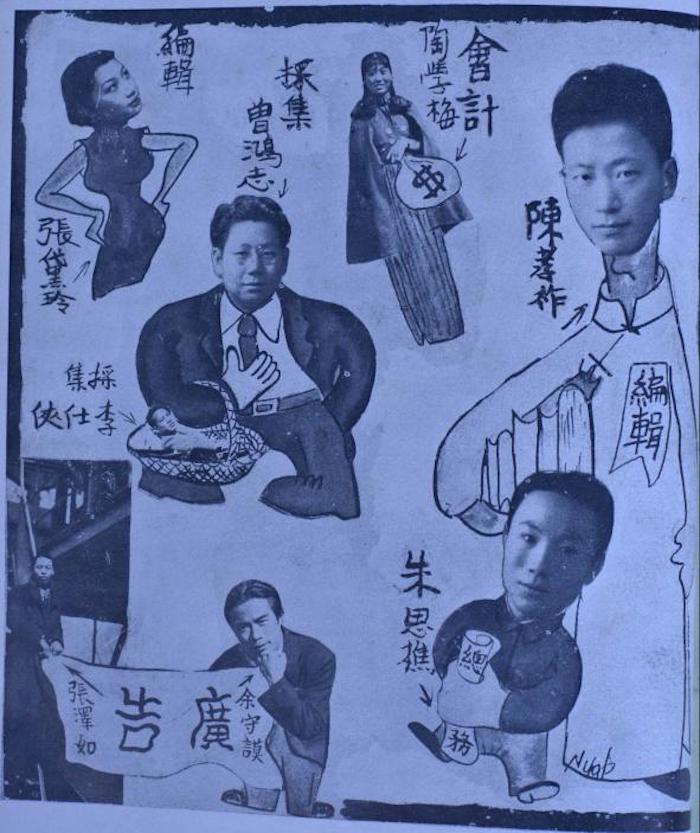 編輯
張黛玲
採集
曾鴻志
會計
陶學梅
陳孝祚
編輯
採集
李仕俠
朱思樵
總
務
廣告
余守謨
張澤如